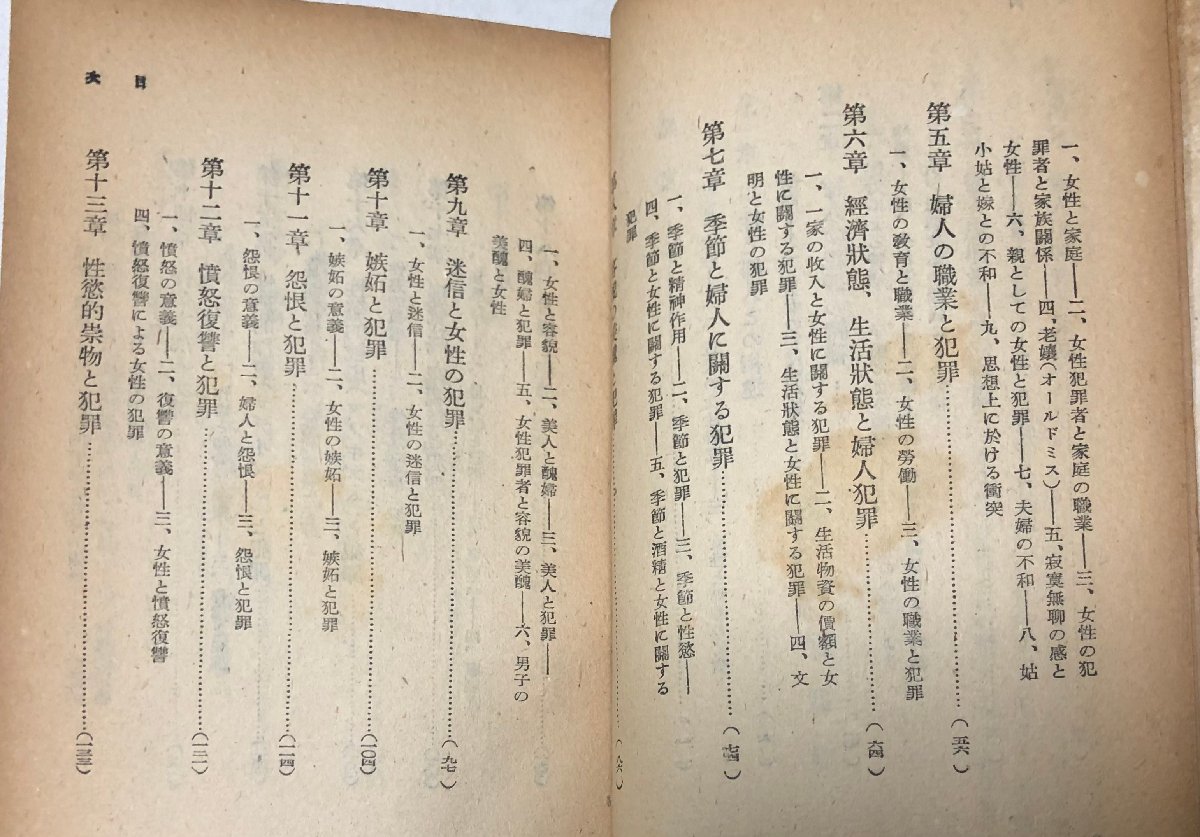 一、女性と家庭――二、女性犯罪者と家庭の職業――三、女性の犯
罪者と家族關係――四、老孃(オールドミス)――五、寂寞無聊の感と
女性――六、親としての女性と犯罪――七、夫婦の不和――八、姑
小姑と嫁との不和――九、思想上に於ける衝突
第五章 婦人の職業と犯罪…………(五六)
一、女性の敎育と職業――二、女性の勞働――三、女性の職業と犯罪
第六章 經濟狀態、生活狀態と婦人犯罪…………(六四)
一、一家の收入と女性に關する犯罪――二、生活物資の價額と女
性に關する犯罪――三、生活狀態と女性に關する犯罪――四、文
明と女性の犯罪
第七章 季節と婦人に關する犯罪…………(七四)
一、季節と精神作用――二、季節と犯罪――三、季節と性慾――
四、季節と女性に關する犯罪――五、季節と酒精と女性に關する
犯罪
目次
一、女性と容貌――二、美人と醜婦――三、美人と犯罪――
四、醜婦と犯罪――五、女性犯罪者と容貌の美醜――六、男子の
美醜と女性
第九章 迷信と女性の犯罪…………(九七)
一、女性と迷信――二、女性の迷信と犯罪
第十章 嫉妬と犯罪…………(一〇四)
一、嫉妬の意義――二、女性の嫉妬――三、嫉妬と犯罪
第十一章 怨恨と犯罪…………(一一四)
一、怨恨の意義――二、婦人と怨恨――三、怨恨と犯罪
第十二章 憤怒復讐と犯罪…………(一二一)
一、憤怒の意義――二、復讐の意義――三、女性と憤怒復讐
四、憤怒復讐による女性の犯罪
第十三章 性慾的崇物と犯罪…………(一三三)